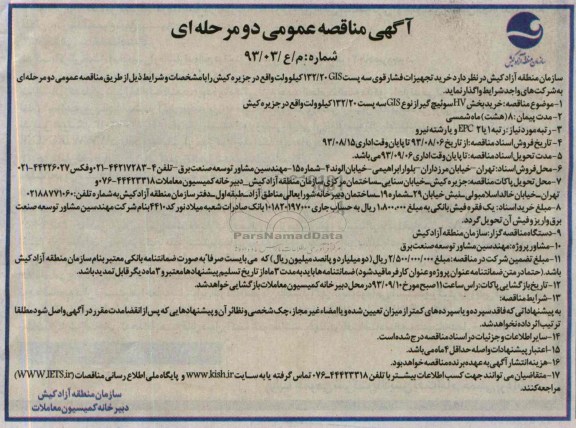 آگهی مناقصه عمومی دو مرحله ای
شماره: م/ع/۹۳/۰۳
سازمان منطقه آزاد کیش
سازمان منطقه آزاد کیش در نظر دارد خرید تجهیزات فشار قوی سه پست GIS ۱۳۲/۲۰ کیلوولت واقع در جزیره کیش را با مشخصات و شرایط ذیل از طریق مناقصه عمومی دو مرحله ای
به شرکت های واجد شرایط واگذار نماید.
۱-موضوع مناقصه: خرید بخش HV سوئیچ گیر از نوع GIS سه پست ۱۳۲/۲۰ کیلوولت واقع در جزیره کیش
۲-مدت پیمان: ۸ (هشت) ماه شمسی
۳-رتبه مورد نیاز: رتبه ۱ یا ۲ EPC و یا رشته نیرو
۴-تاریخ فروش اسناد مناقصه: از تاریخ ۹۳/۰۸/۰۶ تا پایان وقت اداری ۹۳/۰۸/۱۵
۵-مدت تحویل اسناد مناقصه: تا پایان وقت اداری ۹۳/۰۹/۰۶ می باشد.
۶-محل فروش اسناد: تهران-خیابان مرزداران-بلوار ابراهیمی-خیابان الوند ۲-شماره ۱۵-مهندسین مشاور توسعه صنعت برق-تلفن ۴-۴۴۲۱۷۲۸۳-۰۲۱ و فکس ۴۴۲۲۶۰۲۷-۰۲۱
۷-محل تحویل پاکات مناقصه: جزیره کیش_خیابان سنایی_ساختمان مرکزی سازمان منطقه آزاد کیش_دبیرخانه کمیسیون معاملات ۴۴۴۲۳۳۱۸-۰۷۶ و
تهران_خیابان خالد اسلامبولی_نبش خیابان ۲۹_شماره ۱۹_ساختمان دبیرخانه شورایعالی مناطق آزاد_طبقه اول_دفتر سازمان منطقه آزاد کیش به شماره تلفن: ۰۲۱۸۸۷۷۱۰۶۰
۸-مبلغ خرید اسناد: یک فقره فیش بانکی به مبلغ ۱.۸۰۰.۰۰۰ ریال به حساب جاری ۱۰۱۸۲۰۱۹۷۰۰۰ بانک صادرات شعبه میلاد نور کد ۴۴۱۰ بنام شرکت مهندسین مشاور توسعه صنعت
برق واریز و فیش آن تحویل گردد.
۹-دستگاه مناقصه گزار: سازمان منطقه آزاد کیش
۱۰-مشاور پروژه: مهندسین مشاور توسعه صنعت برق
۱۱-مبلغ تضمین شرکت در مناقصه: مبلغ ۲/۵۰۰/۰۰۰/۰۰۰ ریال (دو میلیارد و پانصد میلیون ریال) که می بایست صرفاً به صورت ضمانتنامه بانکی معتبر بنام سازمان منطقه آزاد کیش
باشد. (حتما در متن ضمانتنامه عنوان پروژه و عنوان کارفرما قید شود) ضمانتنامه ها باید به مدت ۳ ماه از تاریخ تسلیم پیشنهادها معتبر و ۳ ماه دیگر قابل تمدید باشد.
۱۲-تاریخ بازگشایی پاکات: راس ساعت ۱۱ صبح مورخ ۹۳/۰۹/۱۰ در محل دبیرخانه کمیسیون معاملات بازگشایی خواهد شد.
۱۳-شرایط مناقصه:
به پیشنهاداتی که فاقد سپرده و یا سپرده های کمتر از میزان تعیین شده و یا امضاء غیر مجاز، چک شخصی و نظائر آن و پیشنهادهایی که پس از انقضاء مدت مقرر در آگهی واصل شود مطلقا
ترتیب اثر داده نخواهد شد.
۱۴-سایر اطلاعات و جزئیات در اسناد مناقصه درج شده است.
۱۵-اعتبار پیشنهادات واصله حداقل ۴ ماه می باشد.
۱۶-هزینه انتشار آگهی به عهده برنده مناقصه خواهد بود.
۱۷-متقاضیان می توانند جهت کسب اطلاعات بیشتر با تلفن ۴۴۴۲۳۳۱۸-۰۷۶ تماس گرفته یا به سایت www.kish.ir و پایگاه ملی اطلاع رسانی مناقصات (WWW.IETS.ir)
مراجعه کنند.
سازمان منطقه آزاد کیش
دبیرخانه کمیسیون معاملات
ParsNamadData